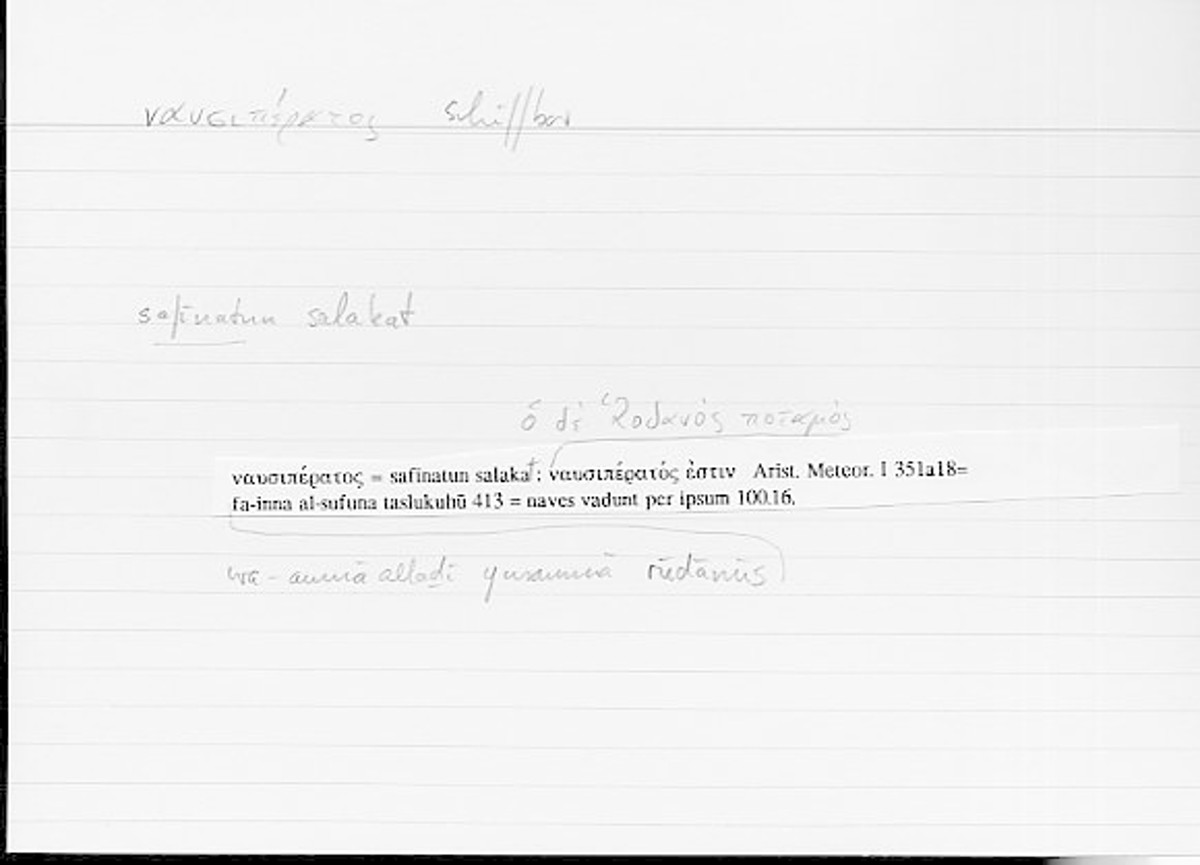 ναυσιπέρατος schiffbar
safīnatun salakat
ὁ δὲ Ῥοδανός ποταμός
ναυσιπέρατος = safīnatun salakat: ναυσιπέρατός ἐστιν Arist. Meteor. I 351a18=
fa-inna al-sufuna taslukuhū 413 = naves vadunt per ipsum 100.16.
wa-ammā allaḏī yusammā rūdānūs